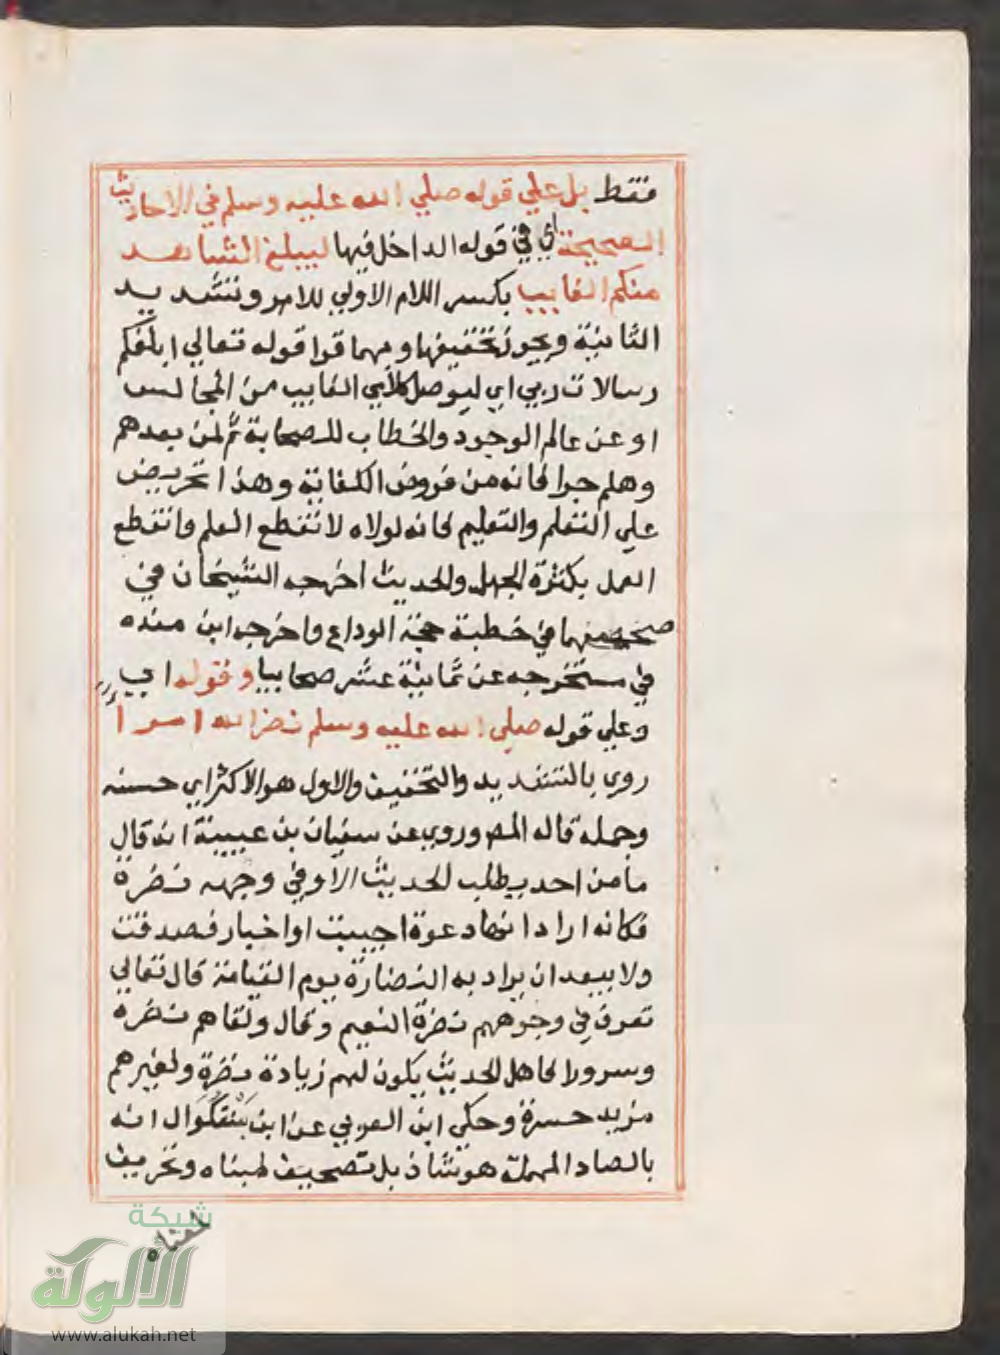 فقط بل علي قوله صلي الله عليه وسلم في الاحاديث
الصحيحة اي في قوله الداخل فيها ليبلغ الشاهد
منكم الغايب بكسر اللام الاولي للامر وتشديد
الثانية ويجوز تخفيفها وبهما قرا قوله تعالي ابلغكم
رسالات ربي اي ليوصل كلامي الغايب من المجالس
او عن عالم الوجود والخطاب للصحابة ثم لمن بعدهم
وهلم جرا فانه من فروض الكفاية وهذا تحريض
علي التعلم والتعليم فانه لولاه لانقطع العلم وانقطع
العمل بكثرة الجهل والحديث اخرجه الشيخان في
صحيحيهما في خطبة حجة الوداع واخرجه ابن منده
في مستخرجه عن ثمانية عشر صحابيا وقوله اي
وعلي قوله صلي الله عليه وسلم نضر الله امرا
روي بالتشديد والتخفيف والاول هو الاكثر اي حسنه
وجمله قاله المص وروي عن سفيان بن عيينة انه قال
ما من احد يطلب الحديث الا وفي وجهه نضرة
فكانه اراد انها دعوة اجيبت او اخبار فصدقت
ولا يبعد ان يراد به النضارة يوم القيامة قال تعالي
تعرف في وجوههم نضرة النعيم وقال ولقاهم نضرة
وسرورا فاهل الحديث يكون لهم زيادة نضرة ولغيرهم
مزيد حسرة وحكي ابن العربي عن ابن بشقكوال انه
بالصاد المهملة هو شاذ بل تصحيف لمبناه وتحريف
لمعناه
شبكة
الألوكة
www.alukah.net